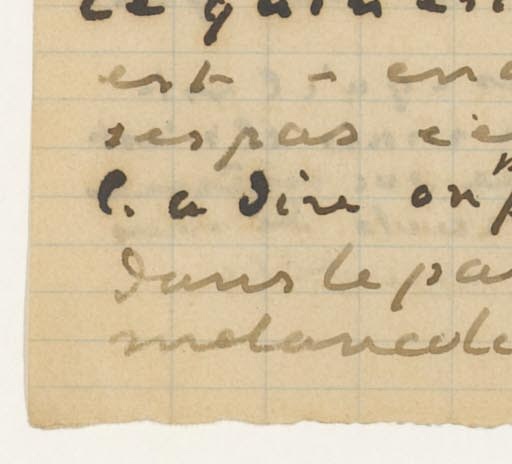 est - en
ses pas
l. a dire on
dans le pa
melancol